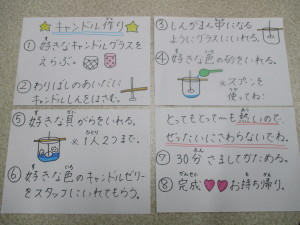 キャンドル作り
① 好きなキャンドルグラスを
えらぶ。
② わりばしのあいだに
キャンドルしんをはさむ。
③ しんがまん中になる
ようにグラスにいれる。
④ 好きな色の砂をいれる。
※スプーンを
使ってね!
⑤ 好きな貝がらをいれる。
※1人2つまで。
⑥ 好きな色のキャンドルゼリー
をスタッフにいれてもらう。
とってもとってーも熱いので
ぜったいにさわらないでね。
⑦ 30分さましてかためる。
⑧ 完成♥♥お持ち帰り。